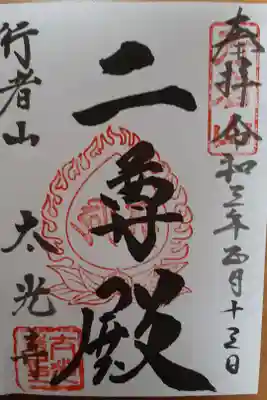 奉拝 令和三年五月十三日
二尊殿
行者山 太光寺